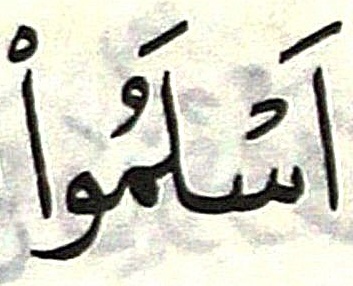 اَسْلَمُواْ